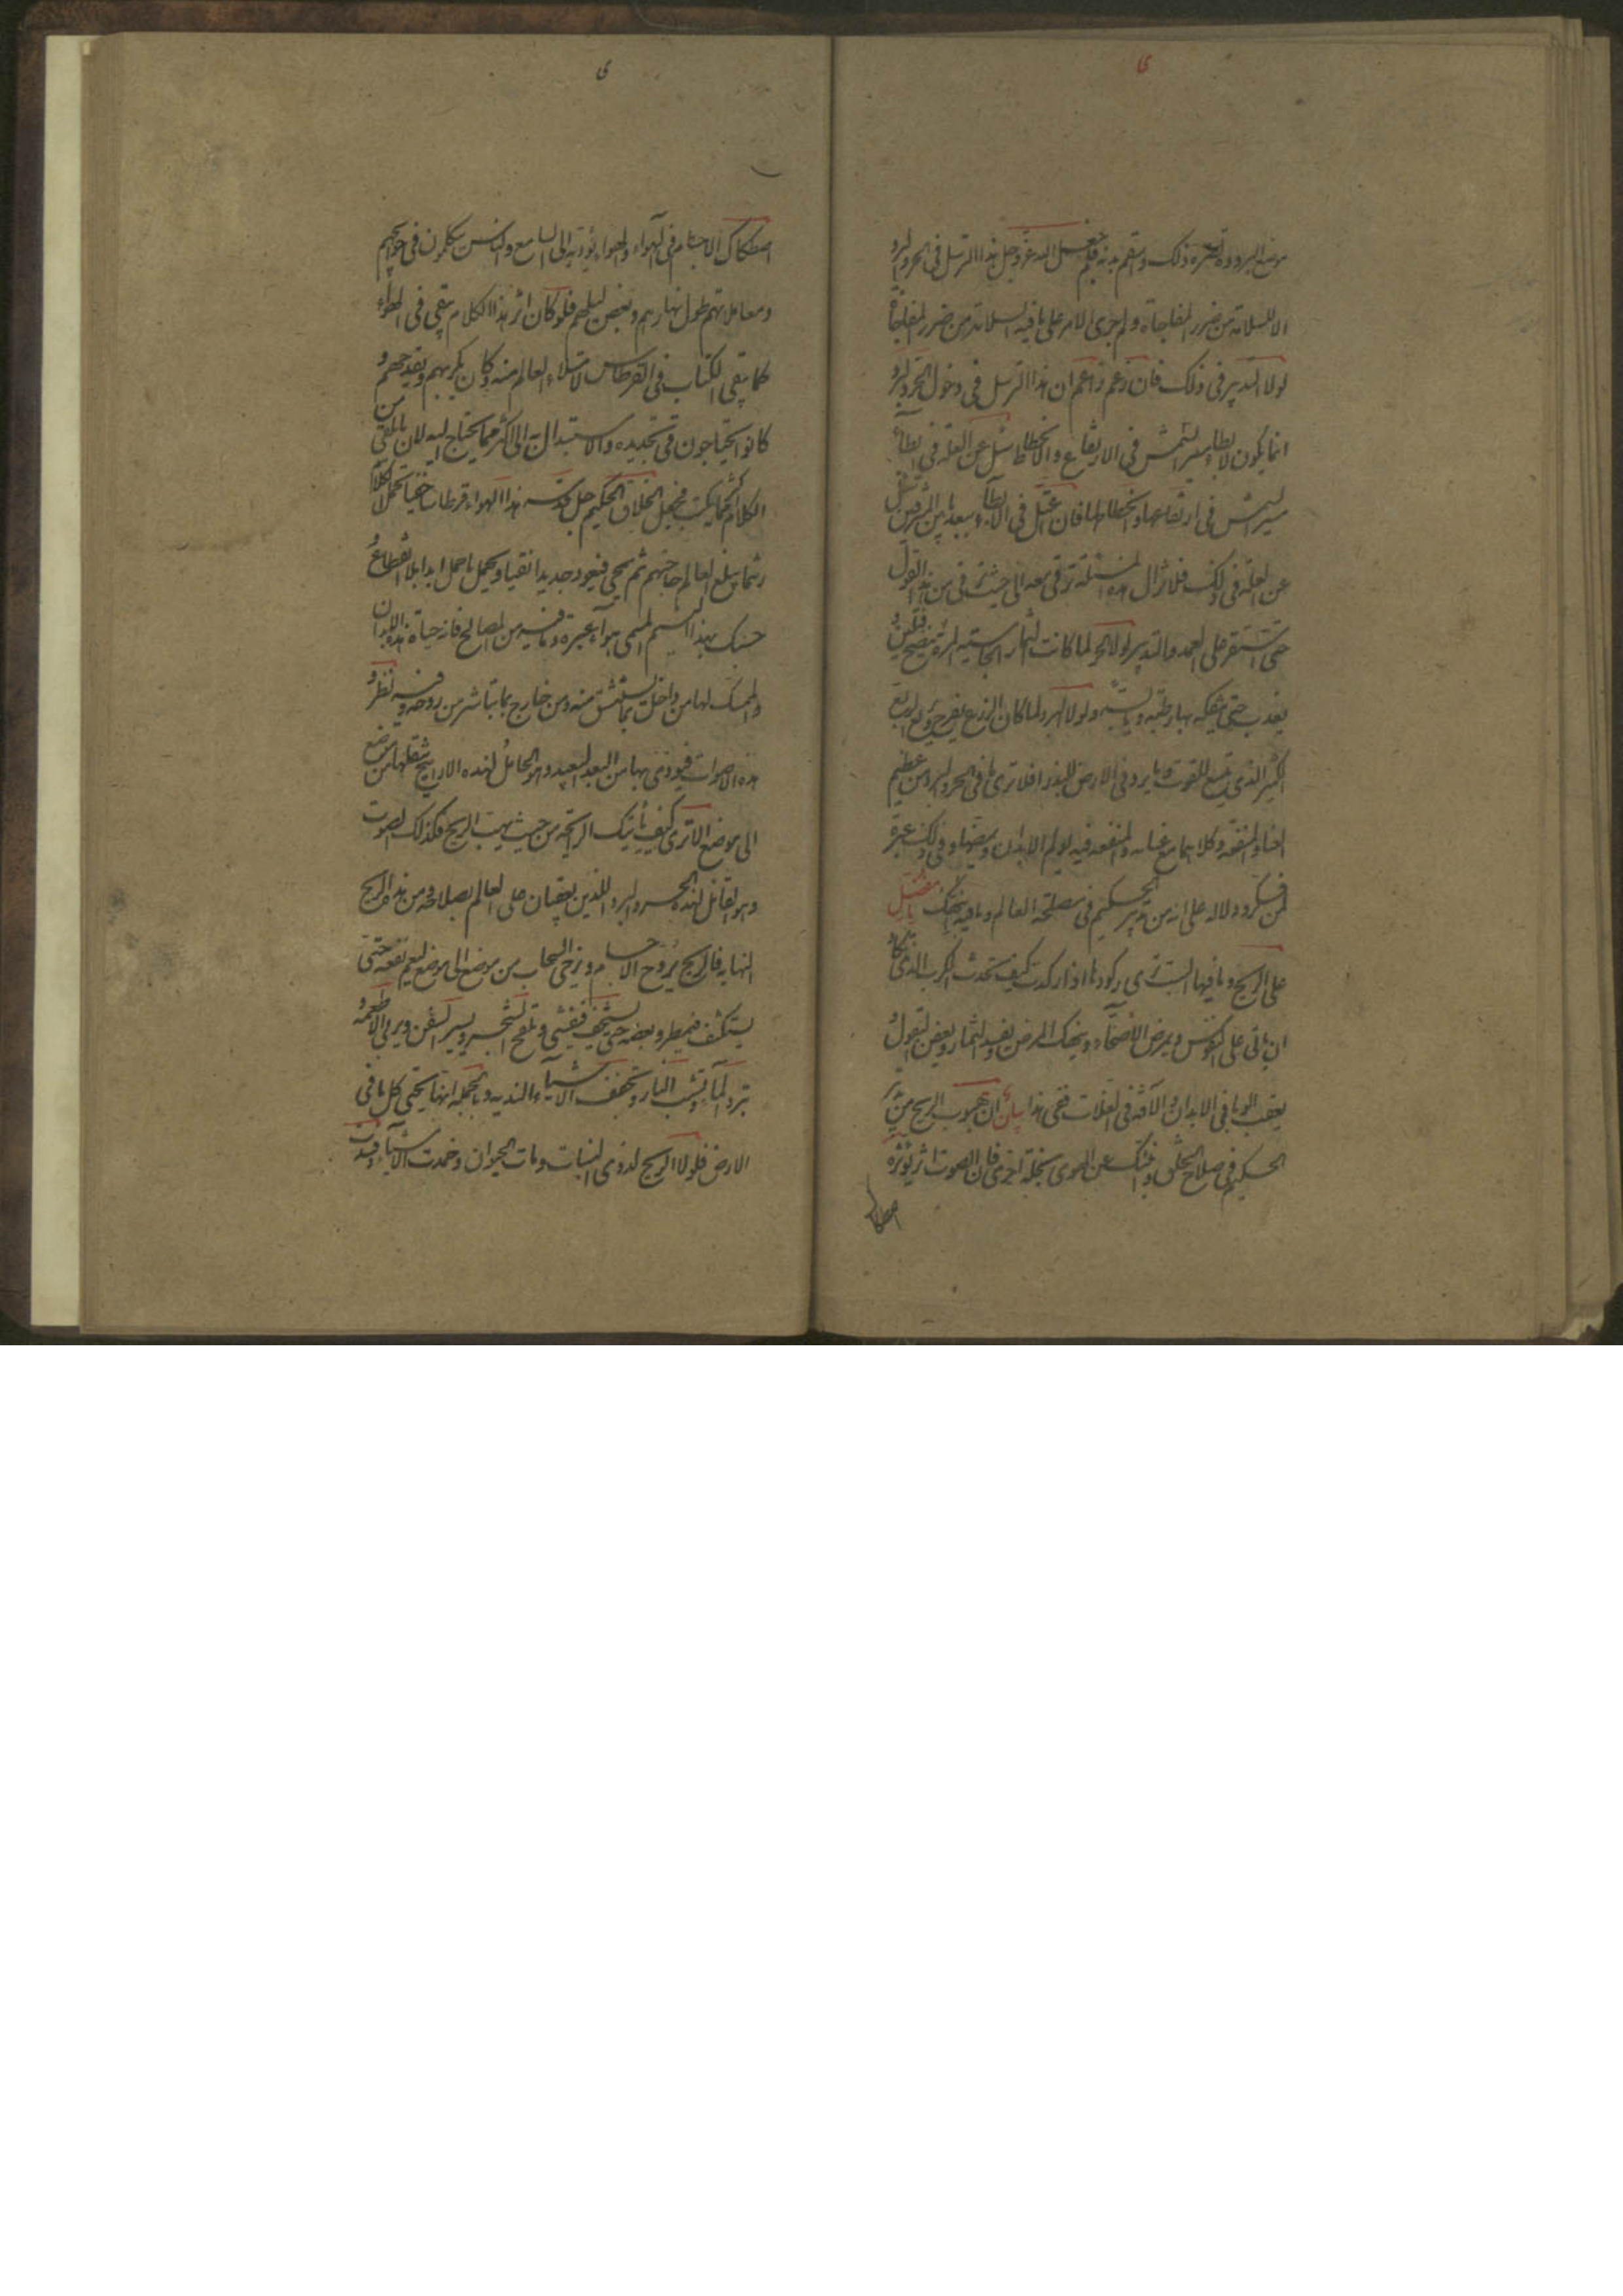 ى
موضع البرودة لضره ذلك واسقم بدنه فلم جعل الله عز وجل هذا الترسل فى الحر والبرد
الا للسلامة من ضرر المفاجاة ولم جرى الامر على ما فيه السلامة من ضرر المفاجاة
لولا التدبير فى ذلك فان زعم زاعم ان هذا الترسل فى دخول الحر والبرد
انما يكون لابطاء مسير الشمس فى الارتفاع والانحطاط سئل عن العلة فى ابطاء
مسير الشمس فى ارتفاعها وانحطاطها فان اعتل فى الابطاء ببعد ما بين المشرقين سئل
عن العلة فى ذلك فلا تزال هذه المسئلة ترقى معه الى حيث رقى من هذا القول
حتى استقر على العمد والتدبير لولا الحر لما كانت الثمار الجاسية المرة تنضج فتلين و
تعذب حتى يتفكه بها رطبة ويابسة ولولا البرد لما كان الزرع يفرخ هكذا ويريع الريع
الكثير الذى يتسع للقوت وما يرد فى الارض للبذر افلا ترى ما فى الحر والبرد من عظيم
الغناء والمنفعة وكلاهما مع غنائه والمنفعة فيه يولم الابدان ويمضها وفى ذلك عبرة
لمن فكر ودلالة على انه من تدبير الحكيم فى مصلحة العالم وما فيه وانبهك يا مفضل
على الريح وما فيها الست ترى ركودها اذا ركدت كيف تحدث الكرب الذى يكاد
ان ياتى على النفوس ويمرض الاصحاء وينهك المرضى ويفسد الثمار ويعفن البقول و
يعقب الوبا فى الابدان والآفة فى الغلات ففى هذا بيان ان هبوب الريح من تدبير
الحكيم فى صلاح الخلق وانبئك عن الهوى بخلة اخرى فان الصوت اثر يؤثره
اصطكاك
ى
اصطكاك الاجسام فى الهواء والهواء يؤديه الى السامع والناس يتكلمون فى حوائجهم
ومعاملاتهم طول نهارهم وبعض ليلهم فلو كان اثر هذا الكلام يبقى فى الهواء
كما يبقى الكتاب فى القرطاس لامتلاء العالم منه وكان يكربهم ويفدحهم و
كانوا يحتاجون فى تجديده والاستبدال به الى اكثر مما يحتاج اليه لان ما يلقى من
الكلام اكثر مما يكتب فجعل الخلاق الحكيم جل قدسه هذا الهواء قرطاسا خفيا يحمل الكلام
ريثما يبلغ العالم حاجتهم ثم يمحى فيعود جديدا نقيا ويحمل ما حمل ابدا بلا انقطاع و
حسبك بهذا النسيم المسمى هواء عبرة وما فيه من المصالح فانه حياة هذه الابدان
والممسك لها من داخل بما تستنشق منه ومن خارج بما تباشر من روحه وفيه تطرد
هذه الاصوات فيؤدى بها من البعد البعيد وهو الحامل لهذه الارابيح ينقلها من موضع
الى موضع الا ترى كيف تأتيك الرائحة من حيث تهب الريح فكذلك الصوت
وهو القابل لهذه الحر والبرد اللذين يعتقبان على العالم لصلاحه ومنه هذه الريح
الهابة فالريح تروح الاجسام وتزجى السحاب من موضع الى موضع ليعم نفعه حتى
يستكثف فيمطر وتفضه حتى يستخف فيفشى وتلقح الشجر وتسير السفن وترخى الاطعمة و
تبرد الماء وتشب النار وتجفف الاشياء الندية وبالجملة انها تحيى كل ما فى
الارض فلولا الريح لذوى النبات ومات الحيوان وخمدت الاشياء وفسدت